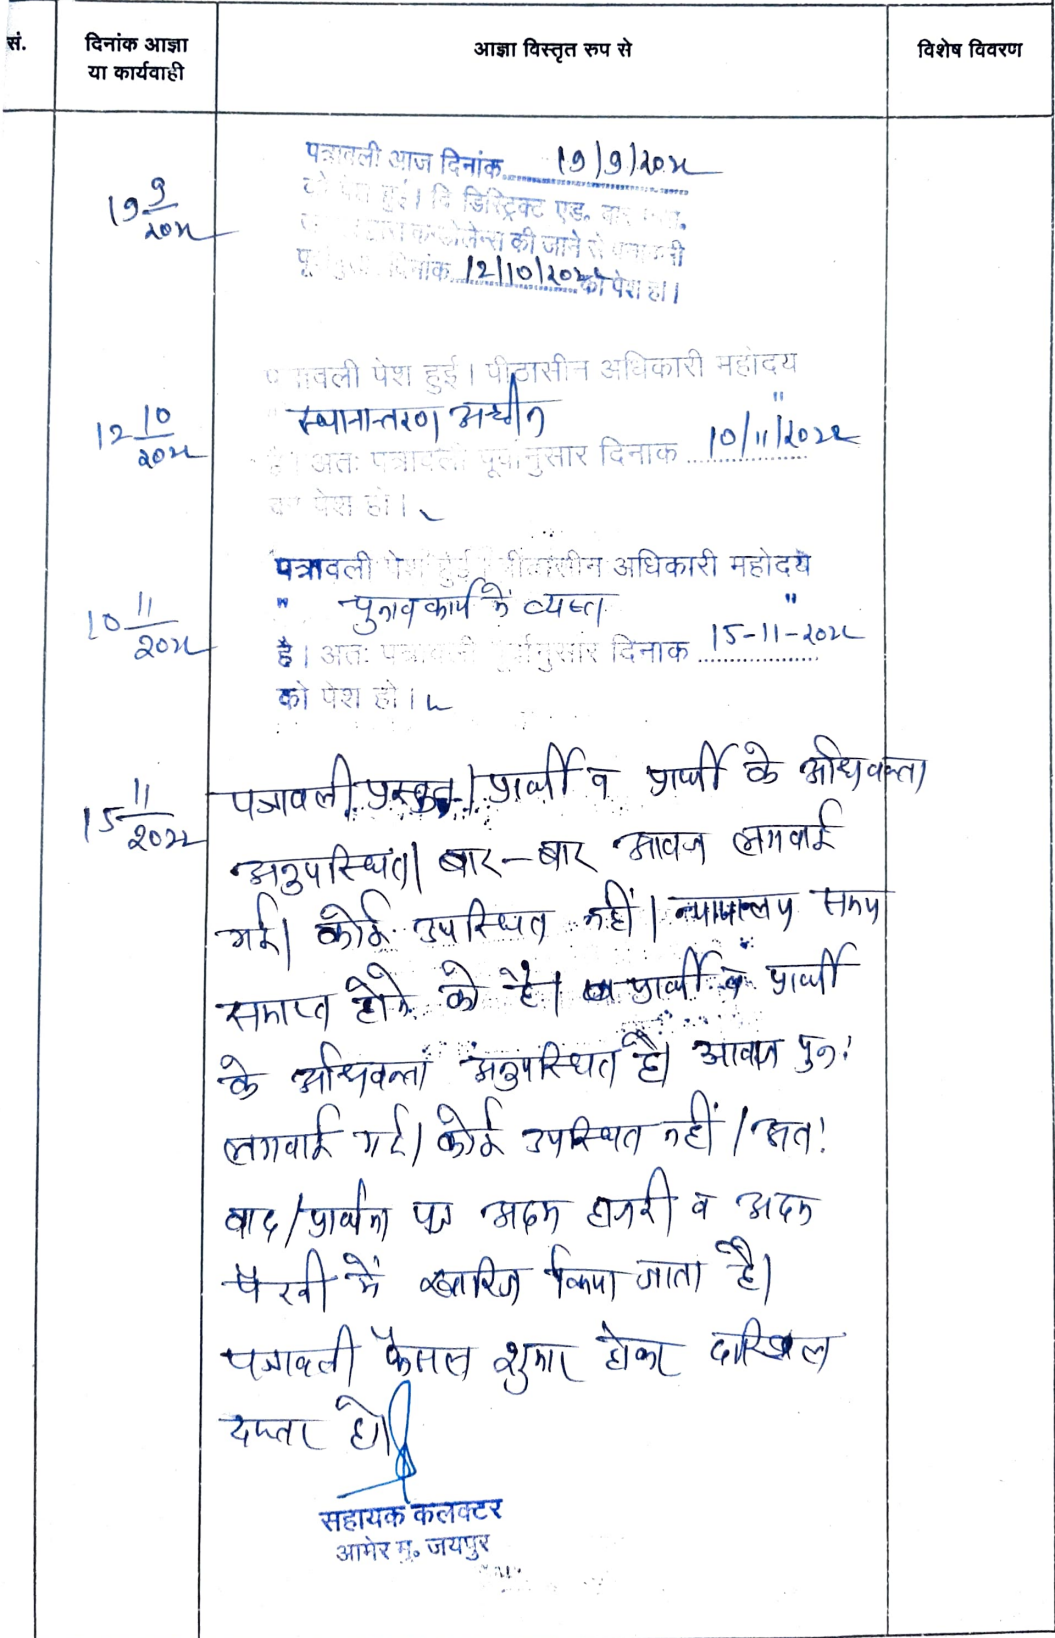 सं.
दिनांक आज्ञा
या कार्यवाही
आज्ञा विस्तृत रुप से
विशेष विवरण
19 9/2022
पत्रावली आज दिनांक 19/9/2022
को पेश हुई। दि डिस्ट्रिक्ट एड. बार
कन्डोलेन्स की जाने से पत्रावली
दिनांक 12/10/2022 को पेश हो।
12 10/2022
पत्रावली पेश हुई। पीठासीन अधिकारी महोदय
" स्थानान्तरण अधीन "
है। अतः पत्रावली पूर्वानुसार दिनांक 10/11/2022
को पेश हो।
10 11/2022
पत्रावली पेश हुई। पीठासीन अधिकारी महोदय
" चुनाव कार्य में व्यस्त "
है। अतः पत्रावली पूर्वानुसार दिनांक 15-11-2022
को पेश हो।
15 11/2022
पत्रावली प्रस्तुत। प्रार्थी व प्रार्थी के अधिवक्ता
अनुपस्थित। बार-बार आवाज लगवाई
गई। कोई उपस्थित नहीं। न्यायालय समय
समाप्त होने को है। प्रार्थी व प्रार्थी
के अधिवक्ता अनुपस्थित है। आवाज पुन:
लगवाई गई। कोई उपस्थित नहीं। अत:
वाद/प्रार्थना पत्र अदम हाजरी व अदम
पैरवी में खारिज किया जाता है।
पत्रावली फैसल शुमार होकर दाखिल
दफ्तर हो।
सहायक कलक्टर
आमेर मु. जयपुर